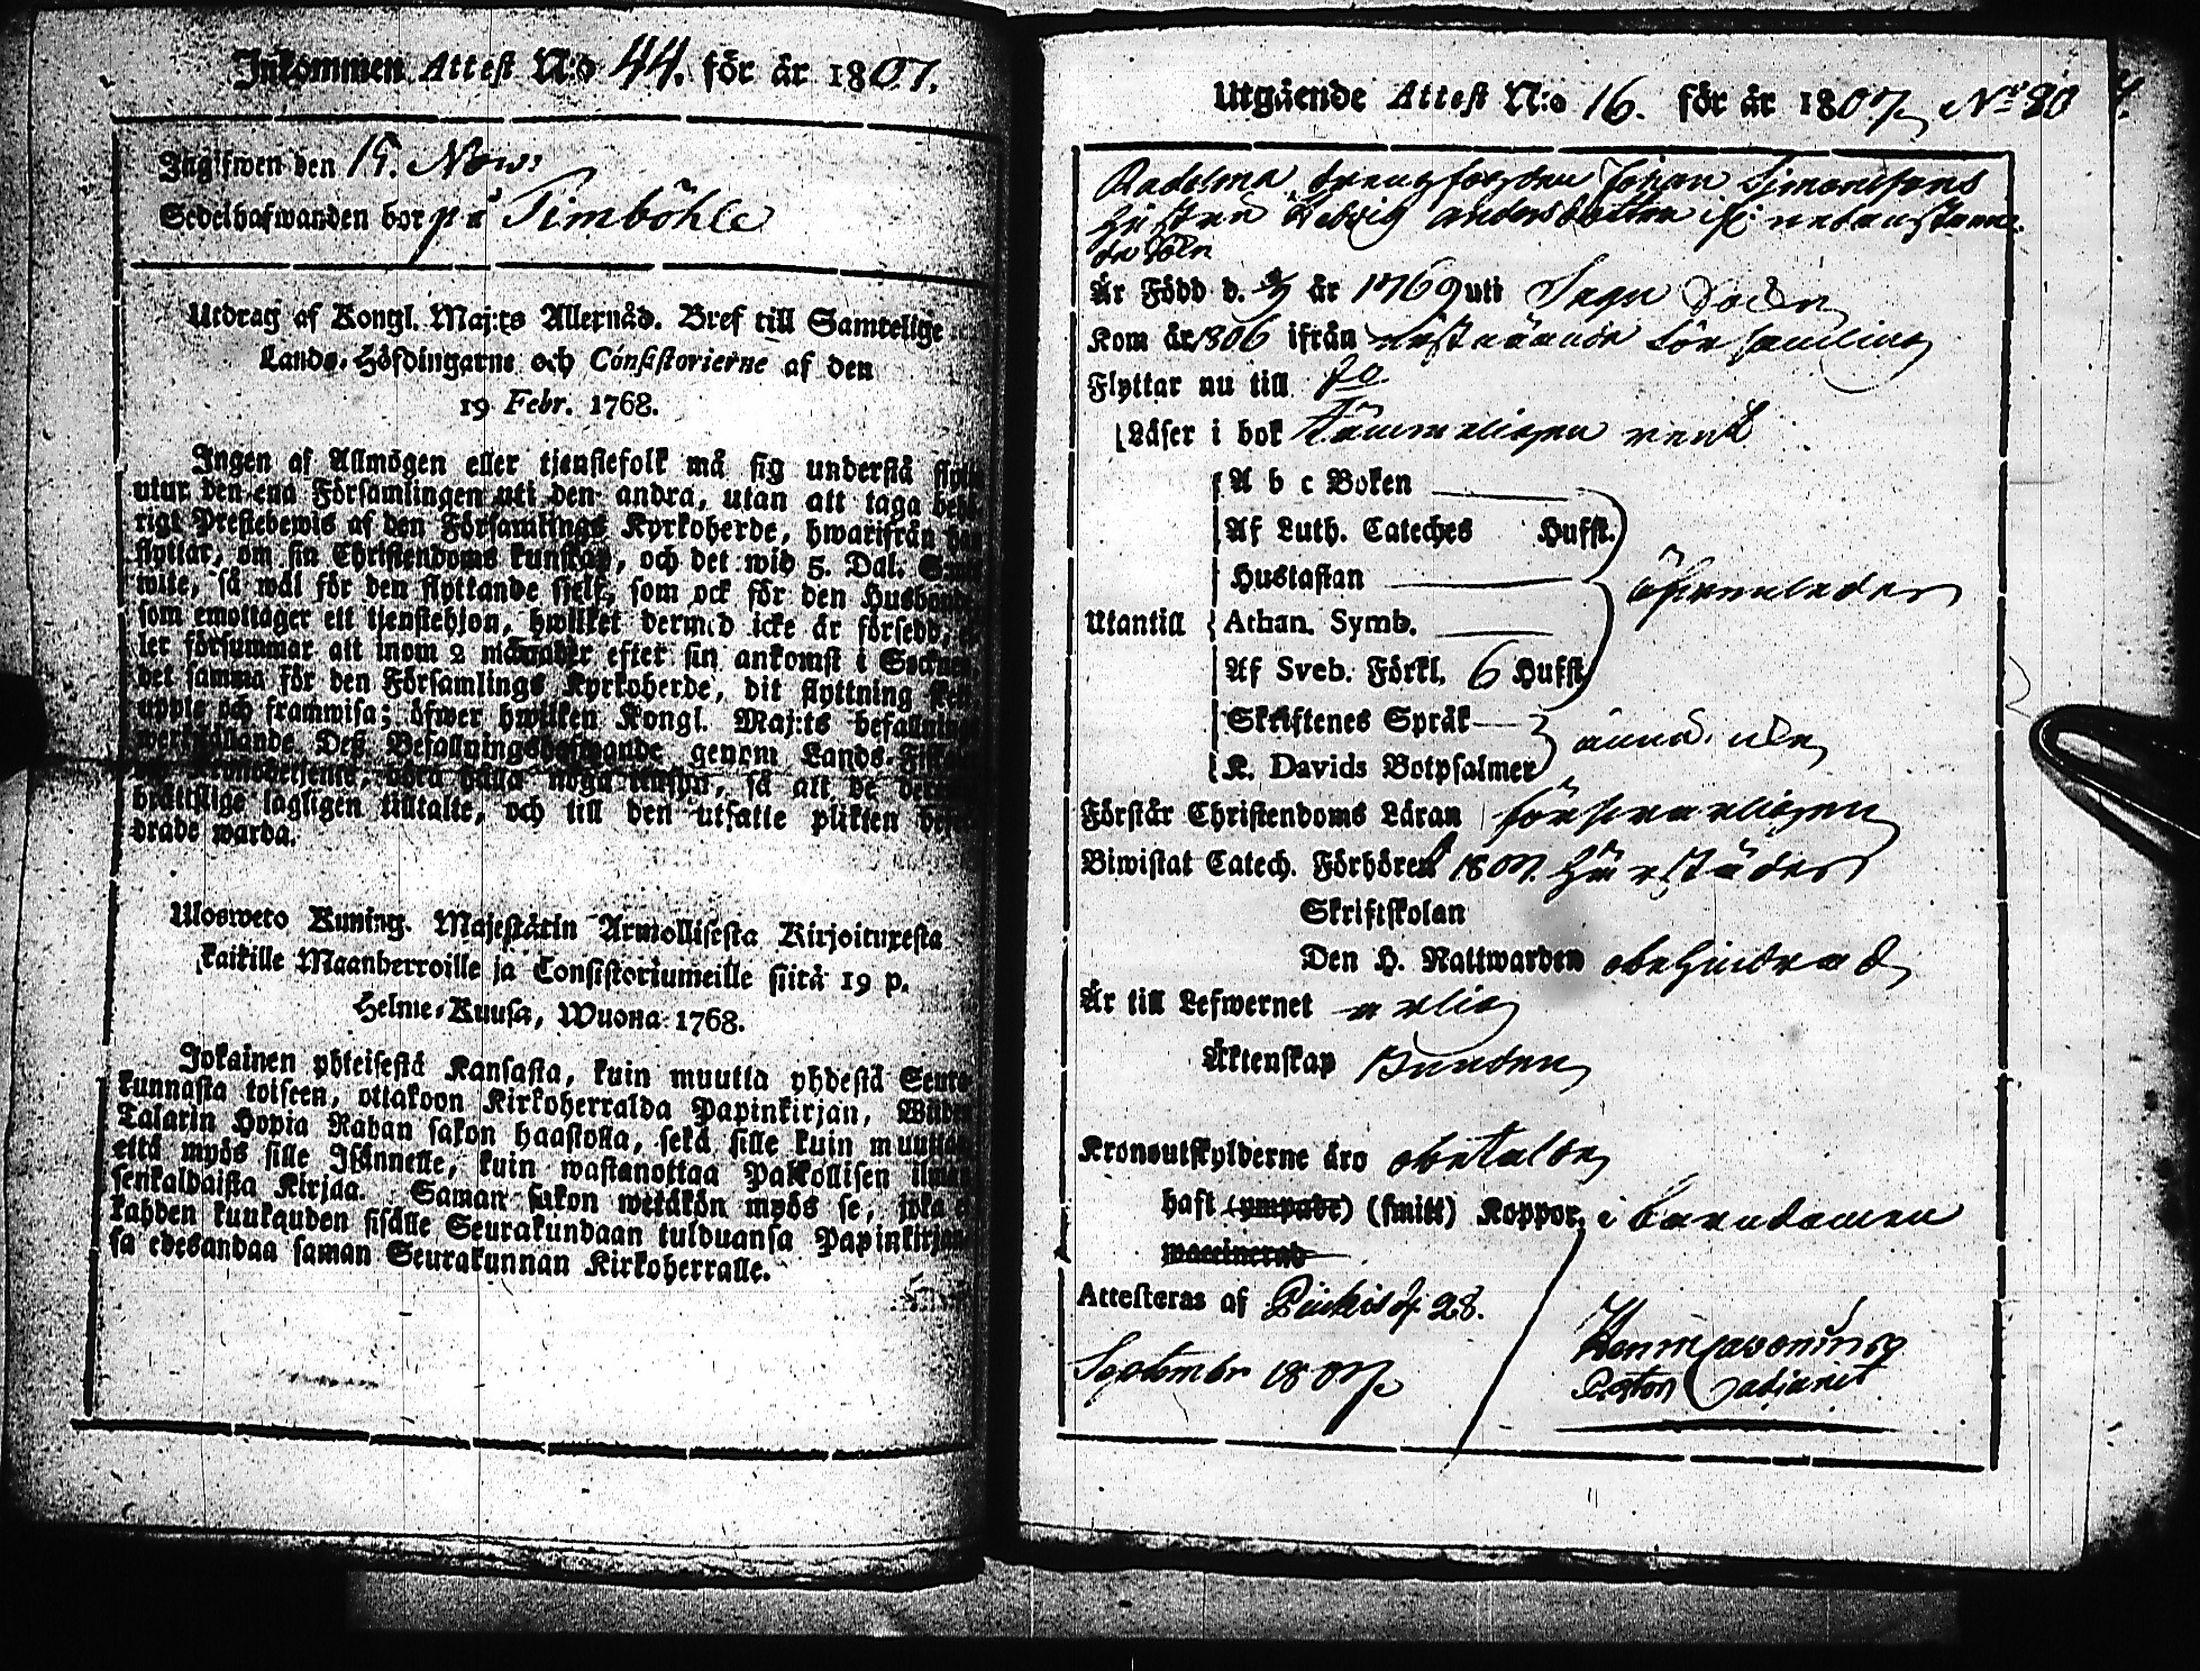 Inkommen Attest N:o 44. för år 1807.
Ingifwen den 15. Nov:
Sedelhafwanden bor på Timböhle
Utdrag af Kongl. Maj:ts Allernåd. Bref till Samtelige
Lands-Höfdingarne och Consistorierne af den
19 Febr. 1768.
Ingen af Allmogen eller tjenstefolk må sig understå
utur den ena Församlingen uti den andra, utan att taga
rigt Prestebewis af den Församlings Kyrkoherde, hwarifrån
flyttar, om sin Christendoms kunskap, och det wid 5. Dal.
wite, så wäl för den flyttande sjelf, som ock för den Husbonde
som emottager ett tjenstehjon, hwilket dermed icke är försedd,
ler försummar att inom 2 månader efter sin ankomst i Socknen
det samma för den Församlings Kyrkoherde, dit flyttning
uppte och framwisa; öfwer hwilken Kongl. Maj:ts befallning
werkställande Deß Befallningshafwande genom Lands-
böra hålla noga inseyn, så att de
brättslige lagligen tilltalte, och till den utsatte plikten
drade warda.
Ulosweto Kuning. Majestätin Armollisesta Kirjoituxesta
kaikille Maanherroille ja Consistoriumeille siitä 19 p.
Helme-Kuusa, Wuona 1768.
Jokainen yhteisestä Kansasta, kuin muutta yhdestä Seura
kunnasta toiseen, ottakoon Kirkoherralda Papinkirjan, Wiiden
Talarin Hopia Rahan sakon haastolla, sekä sille kuin muuttaa
että myös sille Isännelle, kuin wastanottaa Palkollisen ilman
senkaldaista Kirjaa. Saman sakon wetäkön myös se, joka
kahden kuukauden sisälle Seurakundaan tulduansa Papinkirjan
sa edesandaa saman Seurakunnan Kirkoherralle.
Utgående Attest N:o 16. för år 1807 No 80
Johan Simonssons
Hustru Hedvig Andersdotter
Är Född d. år 1769 uti Sagu Sockn
Kom år 1806 ifrån församling
Flyttar nu till
Läser i bok Tämmeligen rent
A b c Boken
Af Luth. Cateches Hufst.
Hustaflan
Utantill Athan. Symb.
Af Sveb. Förkl. 6 Hufst.
Skriftenes Språk
K. Davids Botpsalmer
Förstår Christendoms Läran försvarligen
Biwistat Catech. Förhören 1807. härstädes
Skriftskolan
Den H. Nattwarden obehindrad
Är till Lefwernet ärlig
Äktenskap Bunden
Kronoutskylderne äro obetalde
haft (ympade) (smitt) Koppor, i barndomen
waccinerad
Attesteras af Pikis d. 28.
September 1807
Pastor